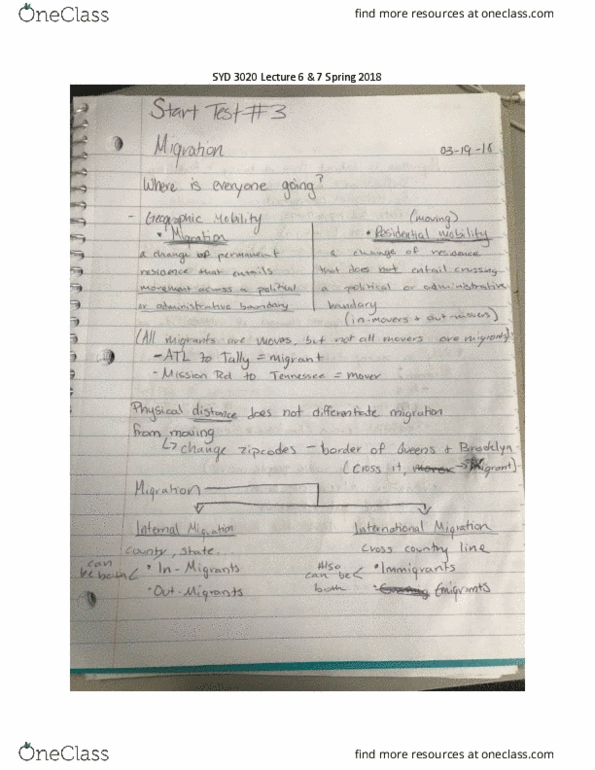 OneClass
find more resources at oneclass.com
SYD 3020 Lecture 6 & 7 Spring 2018
Start Test #3
Migration
03-19-18
Where is everyone going?
- Geographic Mobility
(moving)
• Migration
a change of permanent
residence that entails
movement across a political
or administrative boundary
• Residential Mobility
a change of residence
that does not entail crossing
a political or administrative
boundary
(in-movers + out-movers)
(All migrants are moves, but not all movers are migrants)
- ATL to Tally = migrant
- Mission Rd to Tennessee = mover
Physical distance does not differentiate migration
from moving
↳ change zipcodes - border of Queens + Brooklyn
(cross it, → Migrant)
Migration
Internal Migration
county, state.
can be both < • In-Migrants
• Out-Migrants
International Migration
cross country line
Also can be both < • Immigrants
• Emigrants
OneClass
find more resources at oneclass.com